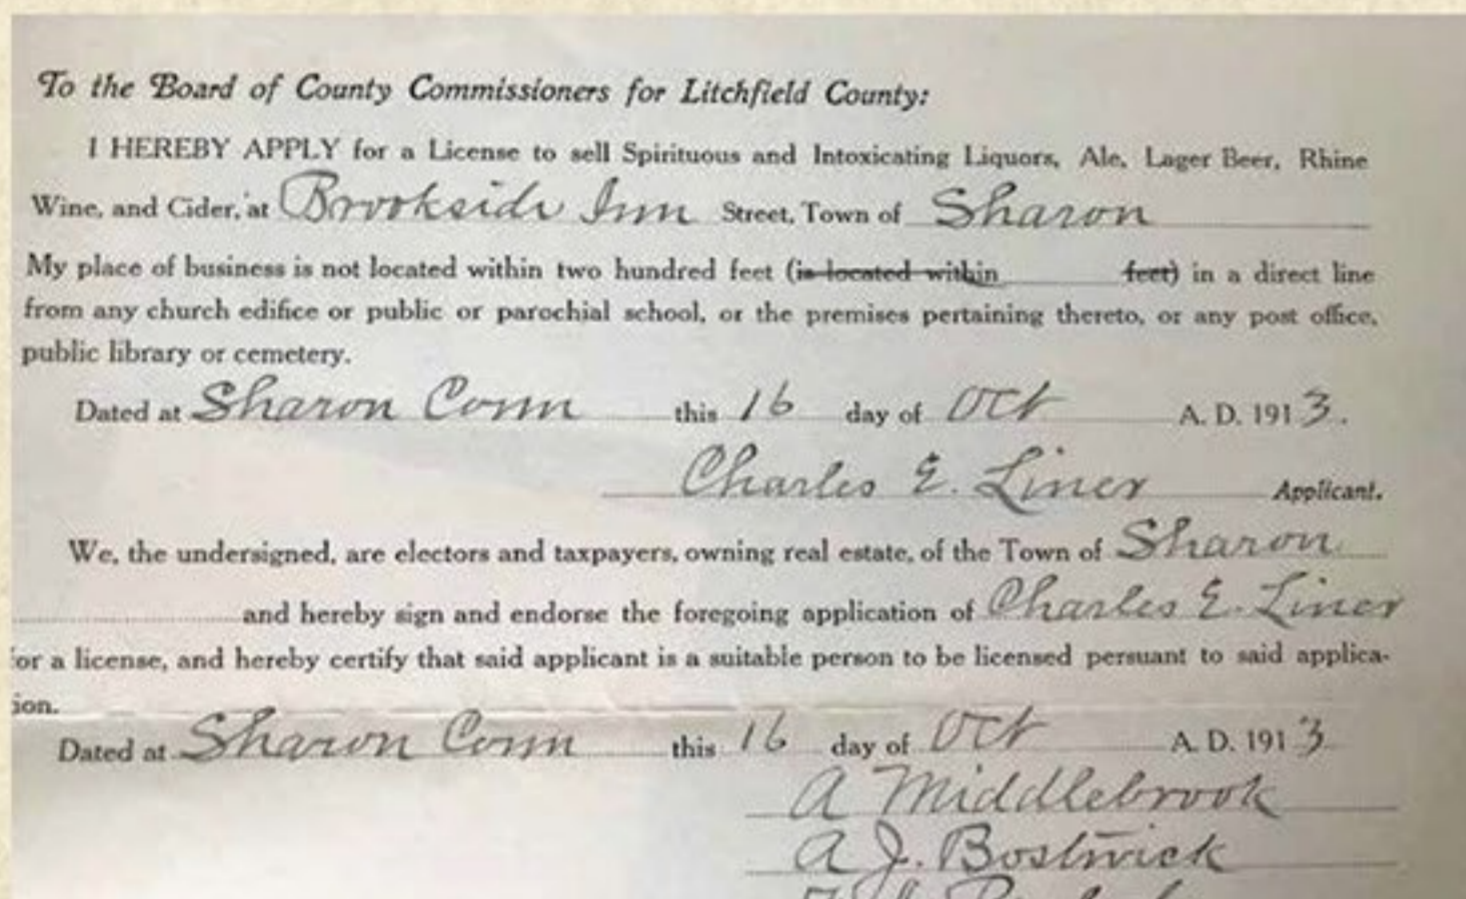 To the Board of County Commissioners for Litchfield County:
I HEREBY APPLY for a License to sell Spirituous and Intoxicating Liquors, Ale, Lager Beer, Rhine
Wine, and Cider, at Brookside Inn Street, Town of Sharon
My place of business is not located within two hundred feet (is located within feet) in a direct line
from any church edifice or public or parochial school, or the premises pertaining thereto, or any post office,
public library or cemetery.
Dated at Sharon Conn this 16 day of Oct A. D. 1913.
Charles E. Liner Applicant.
We, the undersigned, are electors and taxpayers, owning real estate, of the Town of Sharon
and hereby sign and endorse the foregoing application of Charles E. Liner
or a license, and hereby certify that said applicant is a suitable person to be licensed persuant to said applica-
ion.
Dated at Sharon Conn this 16 day of Oct A. D. 1913
A Middlebrook
A J. Bostwick